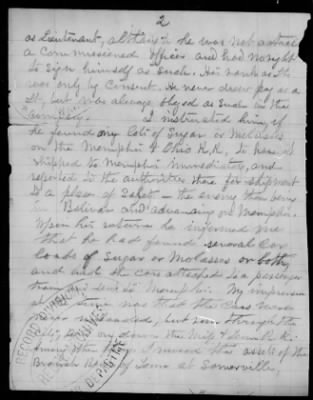 2
as Lieutenant, although he was not actually
a Commissioned Officer and had no right
to sign himself as such. His rank as Lt.
was only by Consent. He never drew pay as a
Lt, but was always obeyed as such in the
Company. I instructed him, if
he found any lots of Sugar or Molasses
on the Memphis & Ohio R.R. to have it
shipped to Memphis immediately, and
reported to the authorities there for shipment
to a place of Safety – the enemy then being
in Bolivar and advancing on Memphis.
Upon his return he informed me
that he had found several Car
loads of Sugar or Molasses or both,
and had the cars attached to a passenger
train and sent to Memphis. My impression
at the time was that the Cars were
never unloaded, but run through the
City and on down the Miss & Tenn R.R.
Among other things I moved the assets of the
Branch Bank of Tenn at Somerville,
RECORD DIVISION